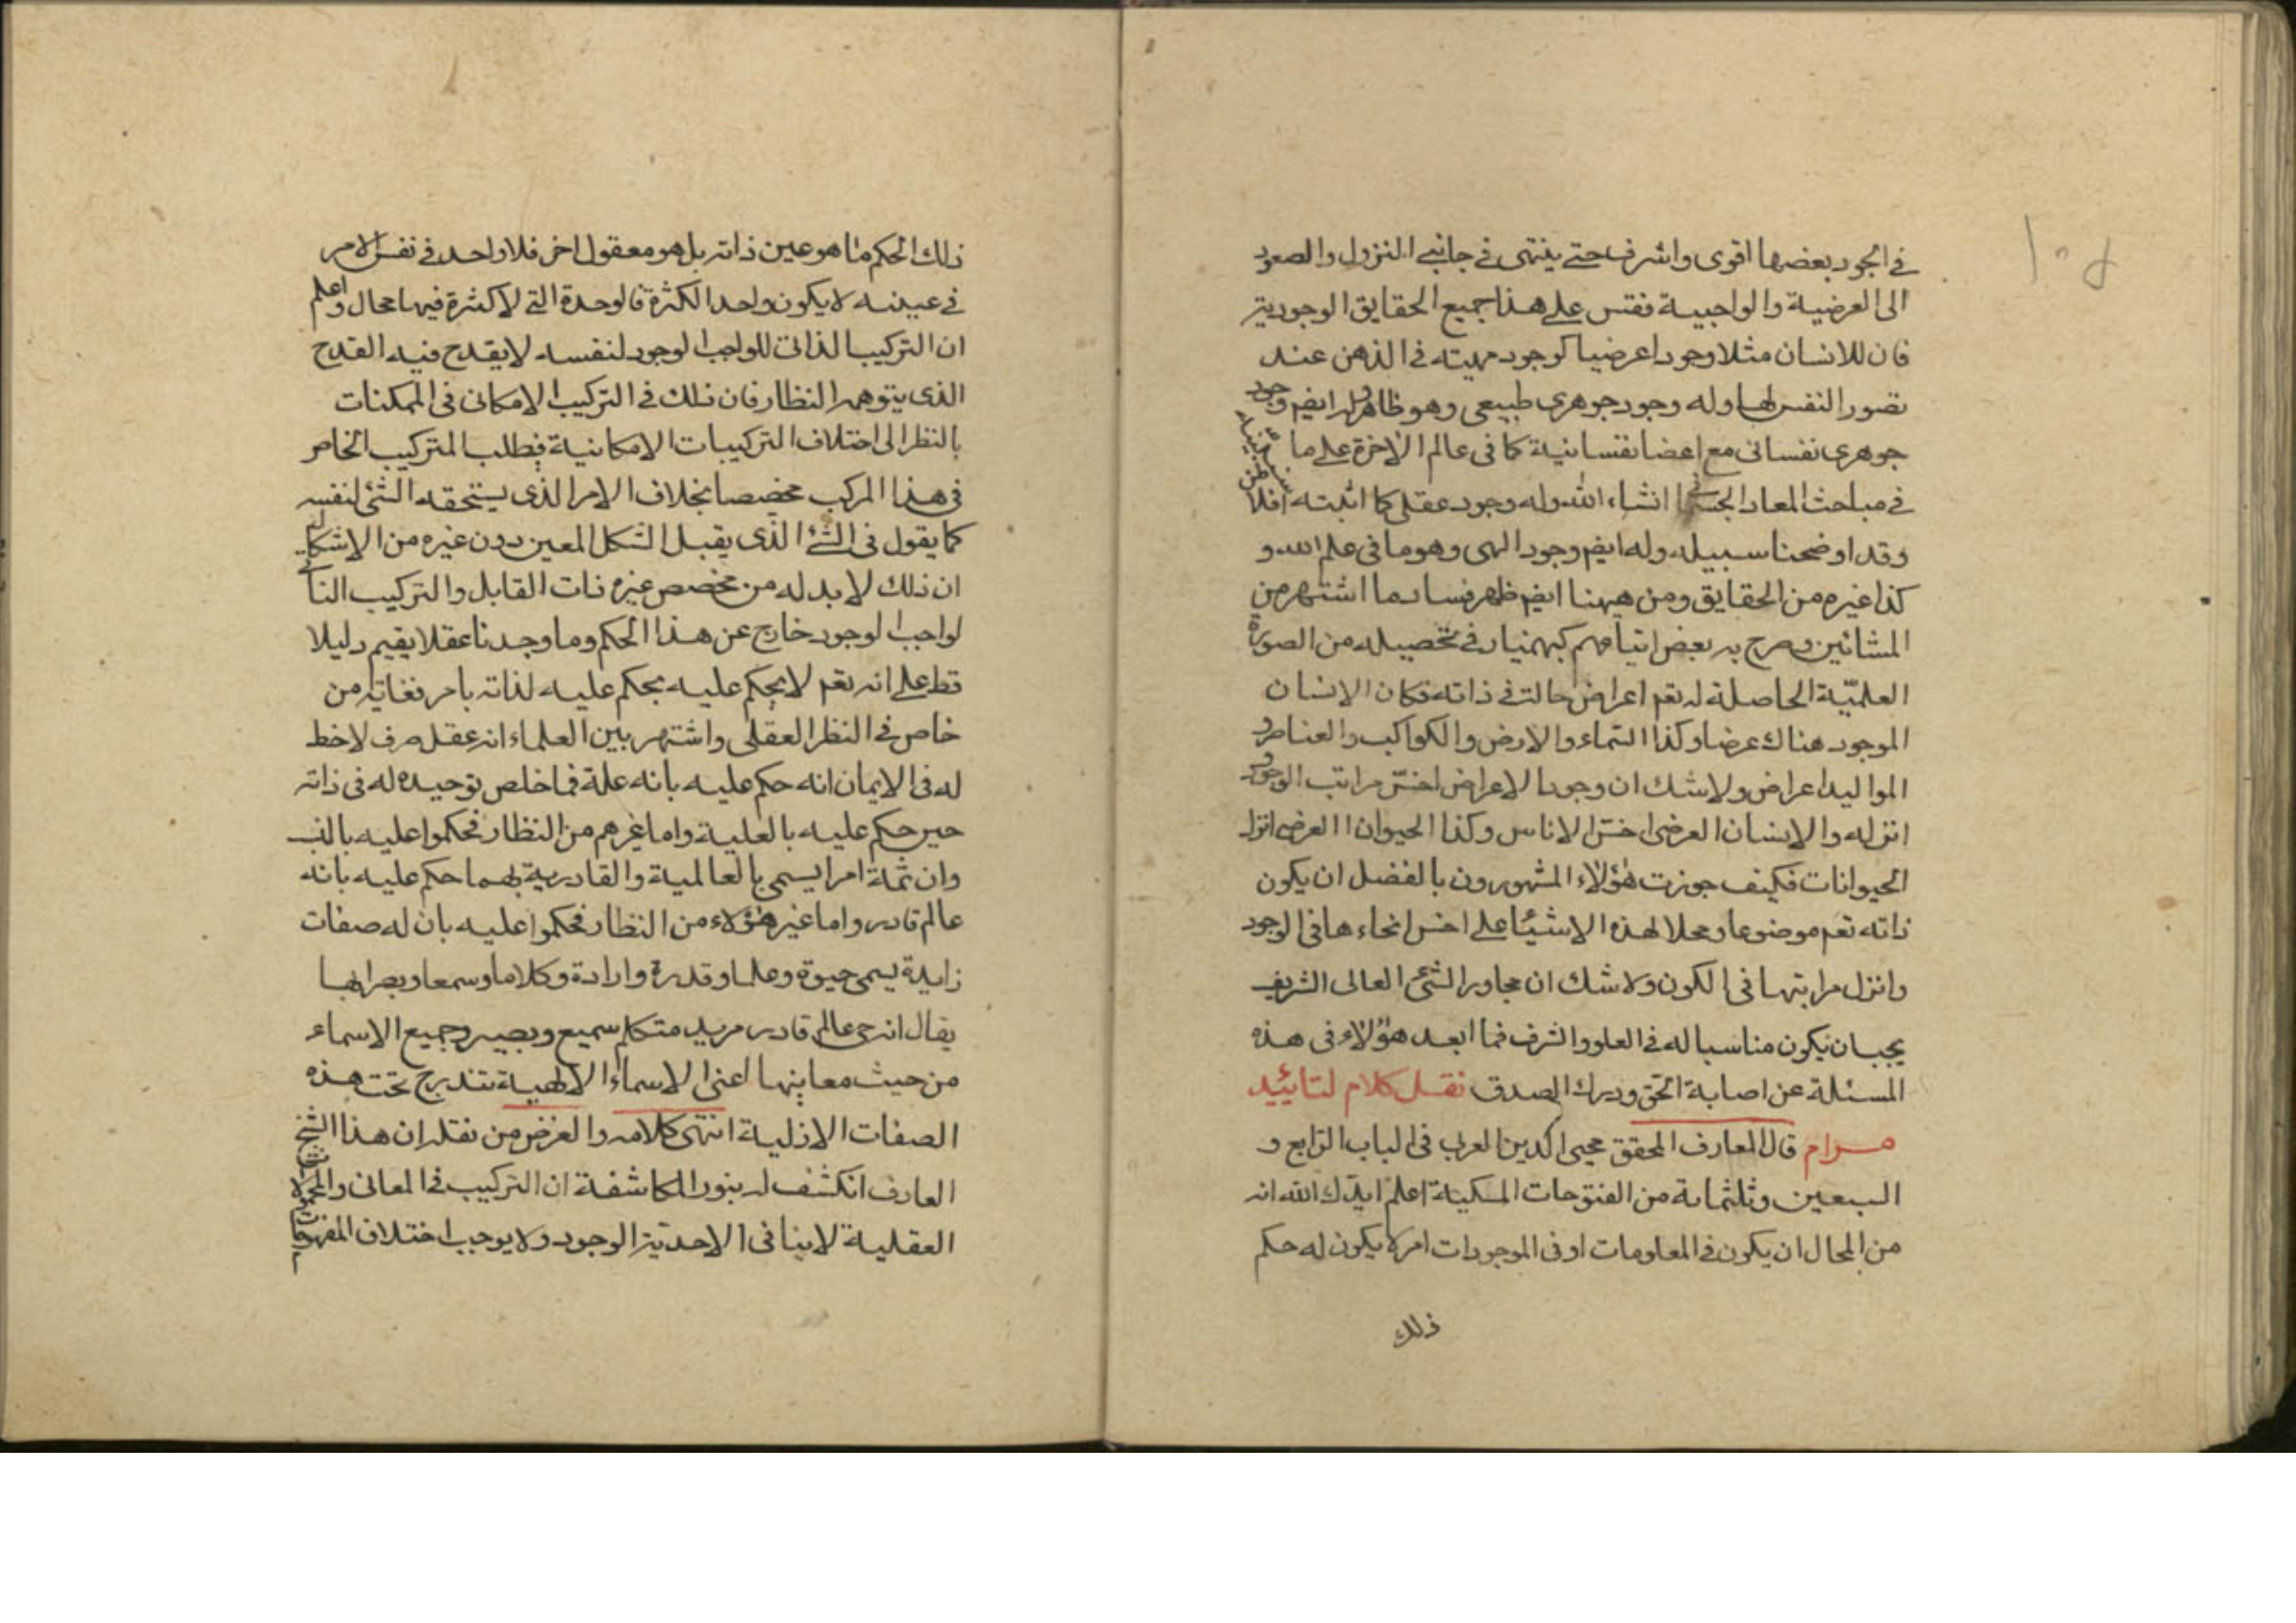 في الجود بعضها اقوى واشرف حتى ينتهى في جانبى النزول والصعود
الى العرضية والواجبية فقس على هذا جميع الحقايق الوجودية
فان للانسان مثلا وجودا عرضيا كوجود مهيته في الذهن عند
تصور النفس لها وله وجود جوهرى طبيعى وهو ظاهر وله ايضم وجود
جوهرى نفسانى مع اعضا نفسانية كما فى عالم الاخرة على ما
في مباحث المعاد الجسمانى انشاء الله وله وجود عقلى كما اثبته افلاطن
وقد اوضحنا سبيله وله ايضم وجود الهى وهو ما فى علم الله و
كذا غيره من الحقايق ومن هيهنا ايضم ظهر فساد ما اشتهر من
المشائين وصرح به بعض اتباعهم كبهمنيار في تحصيله من الصورة
العلميّة الحاصلة له تعم اعراض حالة في ذاته فكان الانسان
الموجود هناك عرضا وكذا السماء والارض والكواكب والعناصر و
المواليد اعراض ولا شك ان وجود الاعراض اخسّ مراتب الوجود
انزله والانسان العرضى اخسّ الاناس وكذا الحيوان العرضى انزل
الحيوانات فكيف جوزت هؤلاء المشهورون بالفضل ان يكون
ذاته تعم موضوعا ومحلا لهذه الاشيئا على اخس انحاءها فى الوجود
وانزل مراتبها فى الكون ولا شك ان مجاور الشئ العالى الشريف
يجب ان يكون مناسبا له في العلو والشرف فما ابعد هؤلاء فى هذه
المسئلة عن اصابة الحق ودرك الصدق نقل كلام لتائيد
مرام قال العارف المحقق محيى الدين العربى فى الباب الرابع و
السبعين وثلثماية من الفتوحات المكية اعلم ايدك الله انه
من المحال ان يكون في المعلومات او فى الموجودات امر لا يكون له حكم
ذلك
ذلك الحكم ما هو عين ذاته بل هو معقول اخر فلا واحد في نفس الامر
في عينه لا يكون واحد الكثرة فالوحدة التى لا كثرة فيها محال واعلم
ان التركيب الذاتى للواجب الوجود لنفسه لا يقدح فيه القدح
الذى يتوهمه النظار فان ذلك في التركيب الامكانى فى الممكنات
بالنظر الى اختلاف التركيبات الامكانية فيطلب المتركيب الخاص
فى هذا المركب مخصصا بخلاف الامر الذى يستحقه الشئ لنفسه
كما يقول فى الشئ الذى يقبل الشكل المعين دون غيره من الاشكال
ان ذلك لا بد له من مخصص غيره ذات القابل والتركيب الذاتى
لواجب الوجود خارج عن هذا الحكم وما وجدنا عقلا يقيم دليلا
قط على انه تعم لا يحكم عليه يحكم عليه لذاته بامر فغايته من
خاص في النظر العقلى واشتهر بين العلماء انه عقل صرف لا حظ
له فى الايمان انه حكم عليه بانه علة فما خلص توحيده له فى ذاته
حين حكم عليه بالعلية واما غيرهم من النظار فحكموا عليه بالنسب
وان ثمة امرا يسمى بالعالمية والقادرية بهما حكم عليه بانه
عالم قادر واما غير هؤلاء من النظار فحكموا عليه بان له صفات
زايدة يسمى حيوة وعلما وقدرة وارادة وكلاما وسمعا وبصرا بها
يقال انه حى عالم قادر مريد متكلم سميع وبصير وجميع الاسماء
من حيث معاينها اعنى الاسماء الالهية تندرج تحت هذه
الصفات الازلية انتهى كلامه والغرض من نقله ان هذا الشيخ
العارف انكشف له بنور المكاشفة ان التركيب في المعانى والمحمولات
العقلية لا ينافى الاحدية الوجود ولا يوجب اختلاف المفهومات